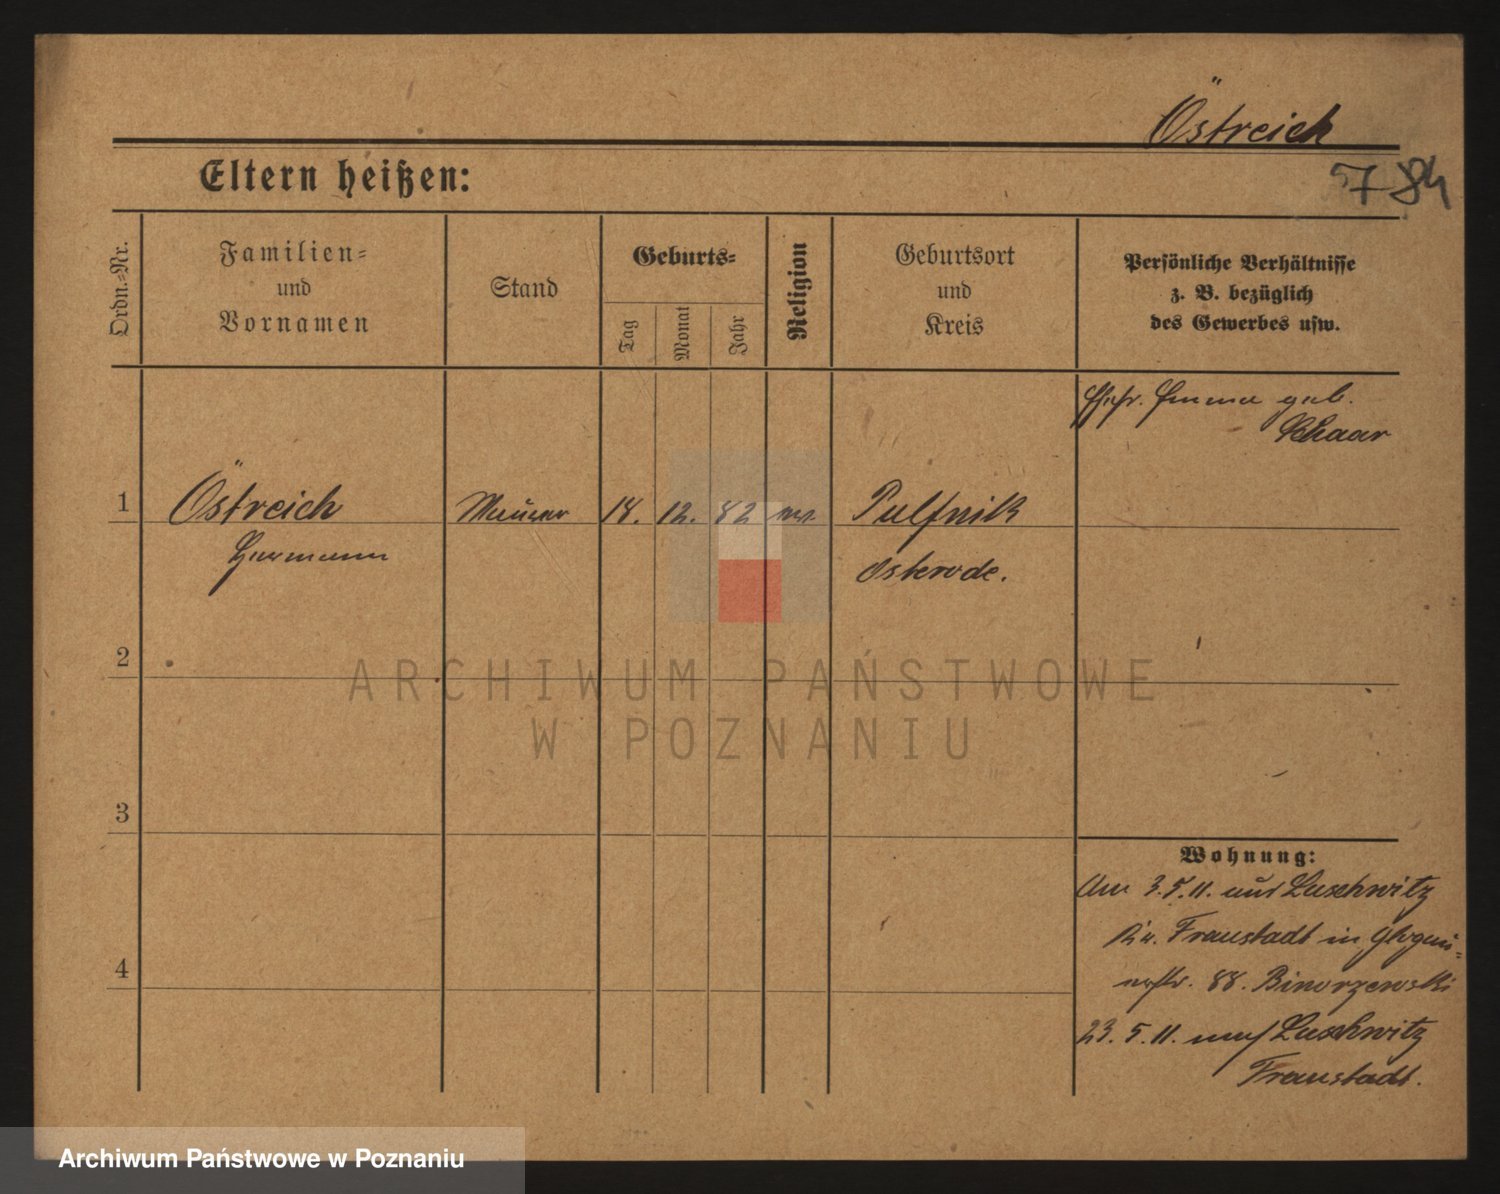 Östreich
784
Eltern heißen:
Ordn.-Nr.
Familien-
und
Vornamen
Stand
Geburts-
Tag
Monat
Jahr
Religion
Geburtsort
und
Kreis
Persönliche Verhältnisse
z. B. bezüglich
des Gewerbes usw.
Ehefr. Emma geb.
Schaar
1
Östreich
Hermann
Maurer
18. 12. 82
ev.
Pulfnik
Osterode.
2
3
4
Wohnung:
Am 3.5.11. aus Luschwitz
Fraustadt in Glogau-
erstr. 88.
23. 5. 11. nach Luschwitz
Fraustadt.
ARCHIWUM PAŃSTWOWE
W POZNANIU
Archiwum Państwowe w Poznaniu